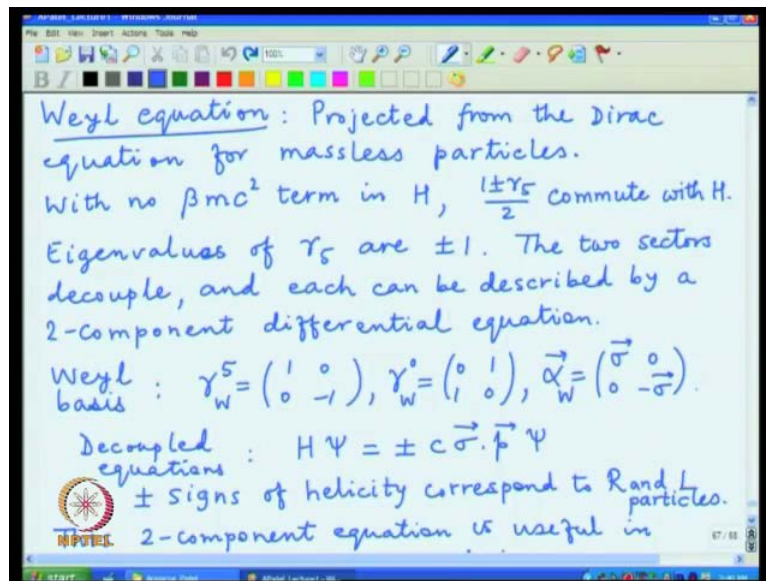 APatel_Lecture1 - Windows Journal
File Edit View Insert Actions Tools Help
100%
B I
Weyl equation : Projected from the Dirac
equation for massless particles.
With no βmc² term in H, (1±γ₅)/2 commute with H.
Eigenvalues of γ₅ are ±1. The two sectors
decouple, and each can be described by a
2-component differential equation.
Weyl basis : γ⁵_W = (1 0; 0 -1), γ⁰_W = (0 1; 1 0), α⃗_W = (σ⃗ 0; 0 -σ⃗).
Decoupled equations : HΨ = ± c σ⃗.p⃗ Ψ
± signs of helicity correspond to R and L particles.
2-component equation is useful in
NPTEL
67 / 68
start